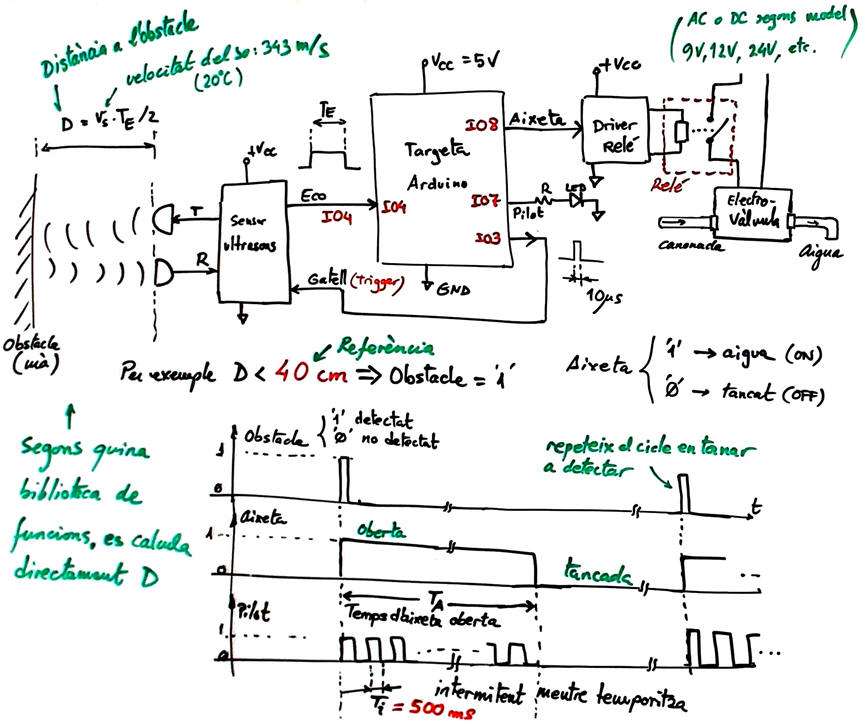 Distància a l'obstacle
velocitat del so: 343 m/s
(20°C)
D = Vs · TE / 2
AC o DC segons model
9V, 12V, 24V, etc.
+Vcc
VCC = 5V
+Vcc
TE
Targeta
Arduino
IO8
Aixeta
Driver
Relé
Relé
Sensor
ultrasons
T
R
Eco
IO4
IO4
IO7
Pilot
R
LED
IO3
Gatell (trigger)
GND
10μs
Electro-
Vàlvula
canonada
aigua
Obstacle
(mà)
Referència
Per exemple D < 40 cm ⇒ Obstacle = '1'
Aixeta
'1' → aigua (ON)
'0' → tancat (OFF)
Segons quina
biblioteca de
funcions, es calcula
directament D
Obstacle
'1' detectat
'0' no detectat
repeteix el cicle en tornar
a detectar
1
0
t
Aixeta
1
0
oberta
tancada
TA
Temps d'aixeta oberta
Pilot
1
0
Ti = 500 ms
intermitent mentre temporitza